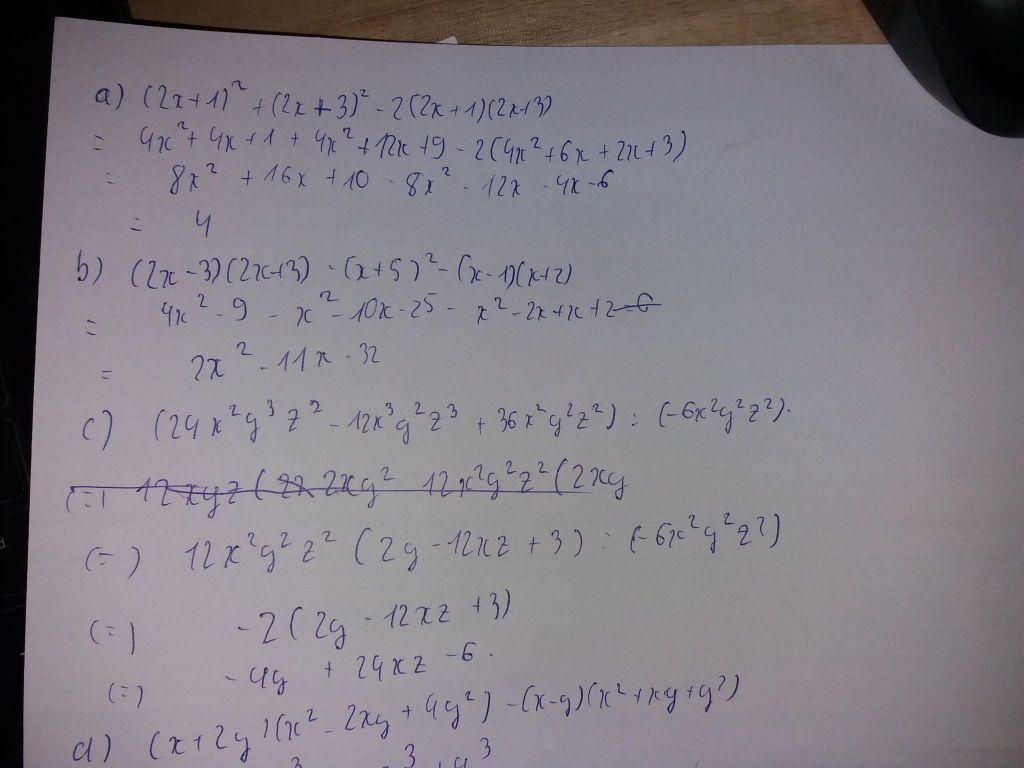 a) (2x+1)² + (2x+3)² - 2(2x+1)(2x+3)
= 4x² + 4x + 1 + 4x² + 12x + 9 - 2(4x² + 6x + 2x + 3)
= 8x² + 16x + 10 - 8x² - 12x - 4x - 6
= 4
b) (2x-3)(2x+3) - (x+5)² - (x-1)(x+2)
= 4x² - 9 - x² - 10x - 25 - x² - 2x + x + 2
= 2x² - 11x - 32
c) (24x²y³z² - 12x³y²z³ + 36x²y²z²) : (-6x²y²z²).
(=) 12xyz (2x 2xy² 12x²y²z² (2xy
(=) 12x²y²z² (2y - 12xz + 3) : (-6x²y²z²)
(=) -2(2y - 12xz + 3)
(=) -4y + 24xz - 6.
d) (x+2y)(x² - 2xy + 4y²) - (x-y)(x² + xy + y²)